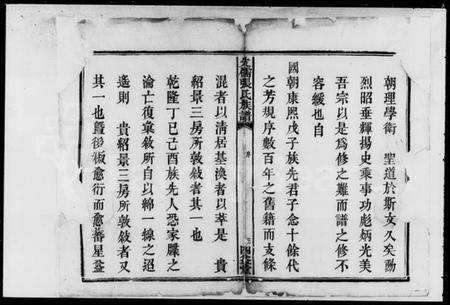 朝理學衛　聖道於斯文久矣勳
烈昭垂輝揚史乘事功彪炳光美
吾宗以是為修之難而譜之修不
容緩也自
國朝康熙戊子族先君子念十餘代
之芳規序數百年之舊籍而支條
先儒張氏族譜
序
三
混者以清居基渙者以萃是　貴
紹景三房所敦敘者其一也
乾隆丁巳己酉族先人恐家牒之
淪亡復彙敘所自以綿一線之迢
遙則　貴紹景三房所敦敘者又
其一也曁後椒愈衍而愈蕃星益